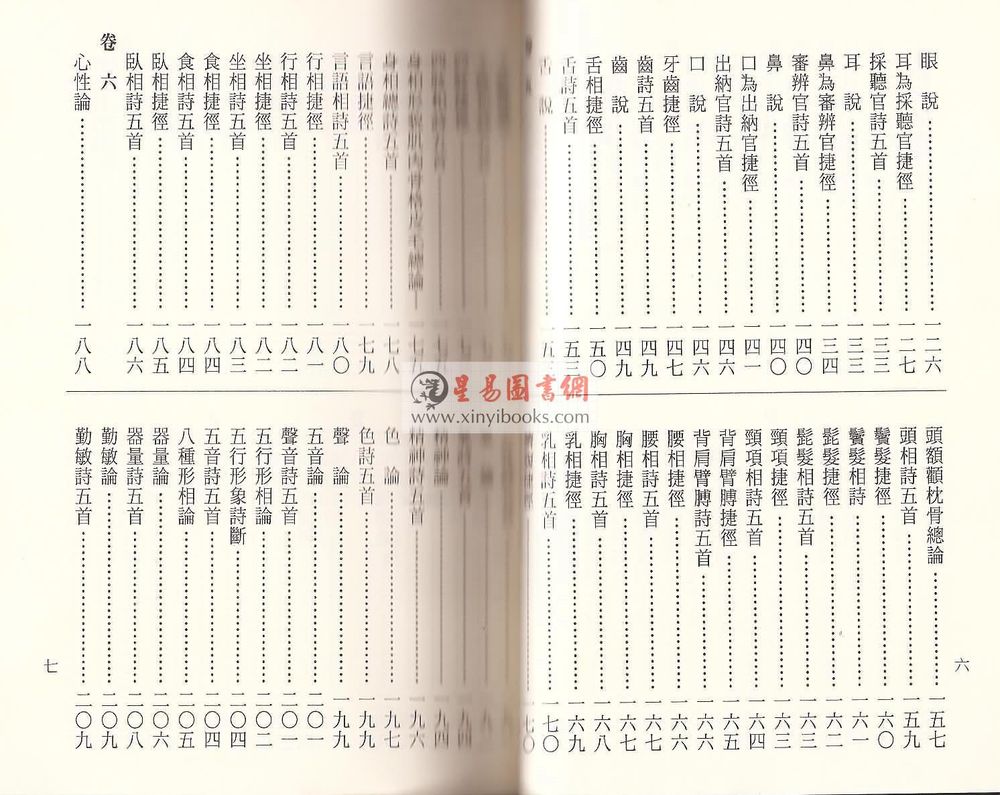 眼說 一二六
耳為採聽官捷徑 一二七
採聽官詩五首 一三三
耳說 一三三
鼻為審辨官捷徑 一三四
審辨官詩五首 一四〇
鼻說 一四〇
口為出納官捷徑 一四一
出納官詩五首 一四六
口說 一四六
牙齒捷徑 一四七
齒詩五首 一四九
齒說 一四九
舌相捷徑 一五〇
舌詩五首 一五三
舌說 一五三
頭額顴枕骨總論 一五七
頭相詩五首 一五九
鬢髮捷徑 一六〇
鬢髮相詩 一六一
髭髮捷徑 一六二
髭髮相詩五首 一六三
頸項捷徑 一六三
頸項相詩五首 一六四
背肩臂膊捷徑 一六五
背肩臂膊詩五首 一六六
腰相捷徑 一六六
腰相詩五首 一六七
胸相捷徑 一六七
胸相詩五首 一六八
乳相捷徑 一六九
乳相詩五首 一七〇
一七〇
六
肌肉骨格皮毛總論
身相總詩五首 一七八
言語捷徑 一七九
言語相詩五首 一八〇
行相捷徑 一八一
行相詩五首 一八二
坐相捷徑 一八二
坐相詩五首 一八三
食相捷徑 一八四
食相詩五首 一八四
臥相捷徑 一八五
臥相詩五首 一八六
卷六
心性論 一八八
精神詩五首 一九六
色論 一九七
色詩五首 一九九
聲論 一九九
五音論 二〇一
聲音詩五首 二〇一
五行形相論 二〇二
五行形象詩斷 二〇四
五音詩五首 二〇四
八種形相論 二〇五
器量詩五首 二〇八
器量論
勤敏論 二〇九
勤敏詩五首 二〇九
七
星易圖書網
www.xinyibooks.com